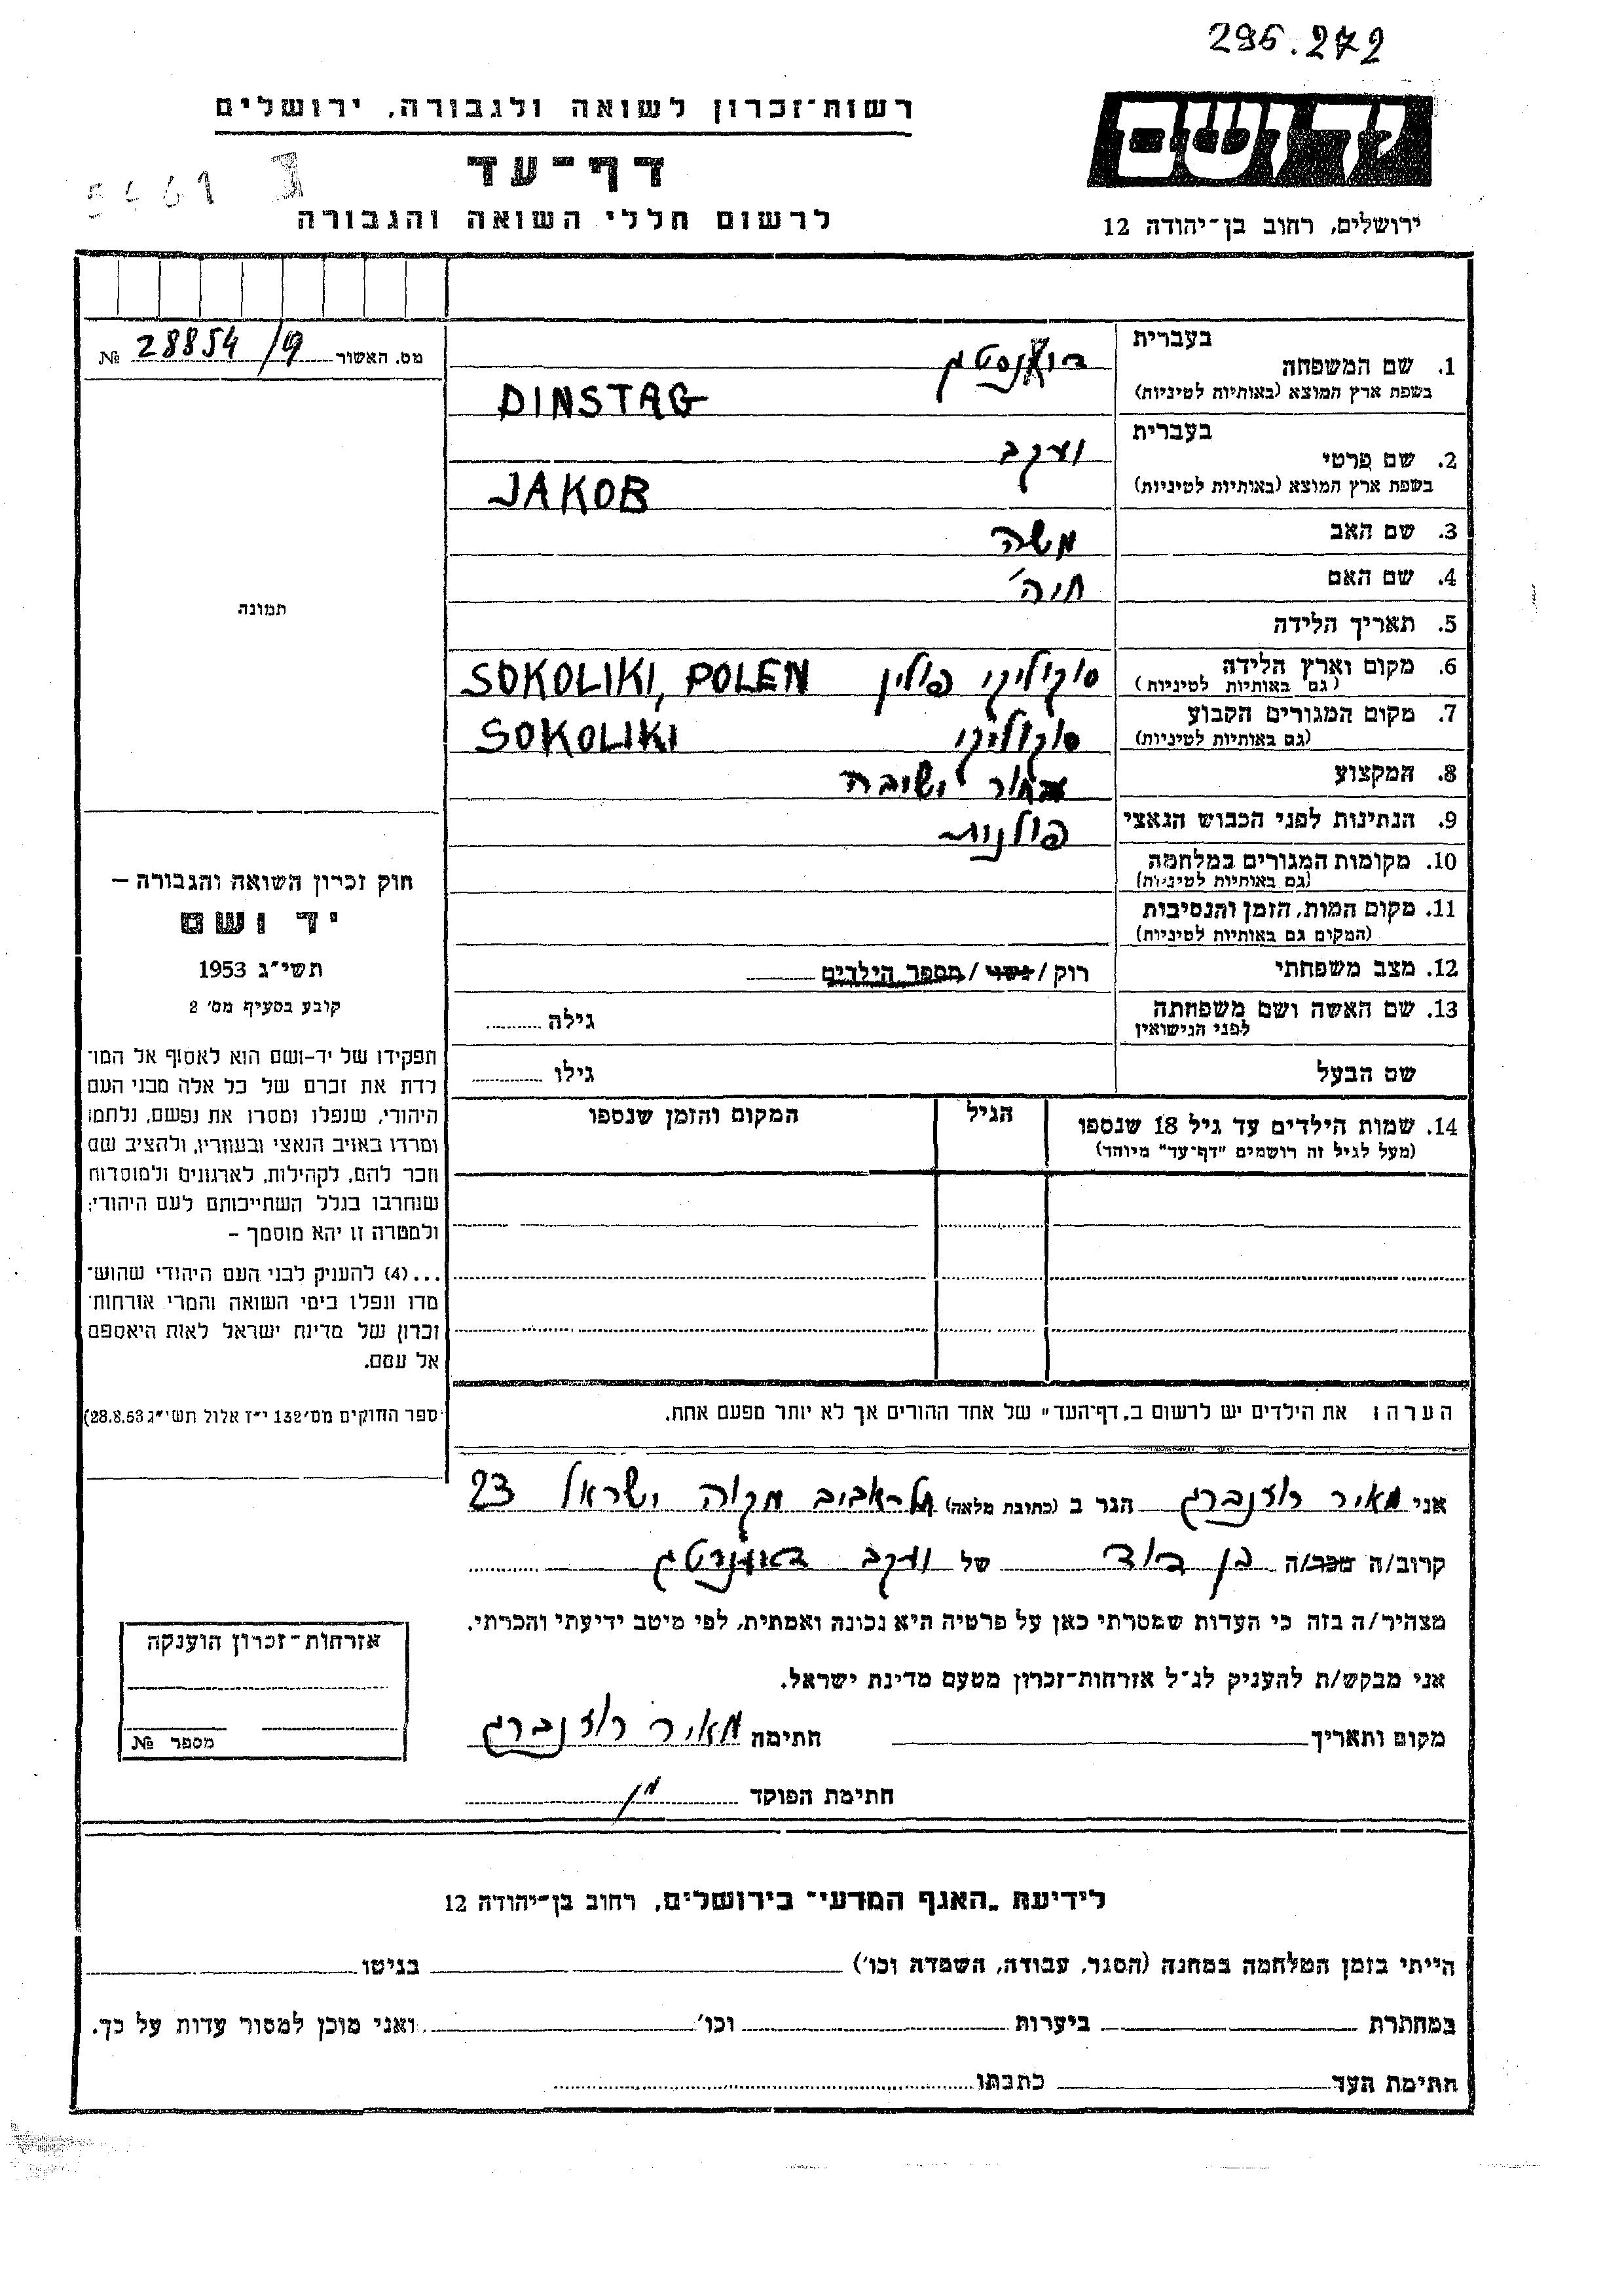 295.272
רשות־זכרון לשואה ולגבורה, ירושלים
דף־עד
לרשום חללי השואה והגבורה
5461
ידושם
ירושלים, רחוב בן־יהודה 12
מס. האשור 28854/19 №
בעברית
1. שם המשפחה
בשפת ארץ המוצא (באותיות לטיניות) DINSTAG
בעברית
2. שם פרטי יעקב
בשפת ארץ המוצא (באותיות לטיניות) JAKOB
3. שם האב משה
4. שם האם חיה
5. תאריך הלידה
6. מקום וארץ הלידה סוקוליקי פולין SOKOLIKI, POLEN
(גם באותיות לטיניות)
7. מקום המגורים הקבוע סוקוליקי SOKOLIKI
(גם באותיות לטיניות)
8. המקצוע בחור ישיבה
9. הנתינות לפני הכבוש הנאצי פולנית
10. מקומות המגורים במלחמה
(גם באותיות לטיניות)
11. מקום המות, הזמן והנסיבות
(המקום גם באותיות לטיניות)
12. מצב משפחתי רוק / נשוי / מספר הילדים
13. שם האשה ושם משפחתה
לפני הנישואין גילה
שם הבעל גילו
14. שמות הילדים עד גיל 18 שנספו הגיל המקום והזמן שנספו
(מעל לגיל זה רושמים "דף־עד" מיוחד)
הערה: את הילדים יש לרשום ב„דף־העד" של אחד ההורים אך לא יותר מפעם אחת.
תמונה
חוק זכרון השואה והגבורה –
יד ושם
תשי"ג 1953
קובע בסעיף מס' 2
תפקידו של יד-ושם הוא לאסוף אל המו־
לדת את זכרם של כל אלה מבני העם
היהודי, שנפלו ומסרו את נפשם, נלחמו
ומרדו באויב הנאצי ובעוזריו, ולהציב שם
וזכר להם, לקהילות, לארגונים ולמוסדות
שנחרבו בגלל השתייכותם לעם היהודי;
ולמטרה זו יהא מוסמך –
...(4) להעניק לבני העם היהודי שהוש־
מדו ונפלו בימי השואה והמרי אזרחות־
זכרון של מדינת ישראל לאות היאספם
אל עמם.
ספר החוקים מס' 132 י"ז אלול תשי"ג 28.8.53)
אני מאיר רוזנברג הגר ב (כתובת מלאה) תל-אביב מקוה ישראל 23
קרוב/ה מכר/ה בן דוד של יעקב
מצהיר/ה בזה כי העדות שמסרתי כאן על פרטיה היא נכונה ואמתית, לפי מיטב ידיעתי והכרתי.
אני מבקש/ת להעניק לנ"ל אזרחות־זכרון מטעם מדינת ישראל.
מקום ותאריך חתימה מאיר רוזנברג
חתימת הפוקד
אזרחות־זכרון הוענקה
מספר №
לידיעת „האגף המדעי" בירושלים, רחוב בן־יהודה 12
הייתי בזמן המלחמה במחנה (הסגר, עבודה, השמדה וכו') בגיטו
במחתרת ביערות וכו' ואני מוכן למסור עדות על כך.
חתימת העד כתבתו